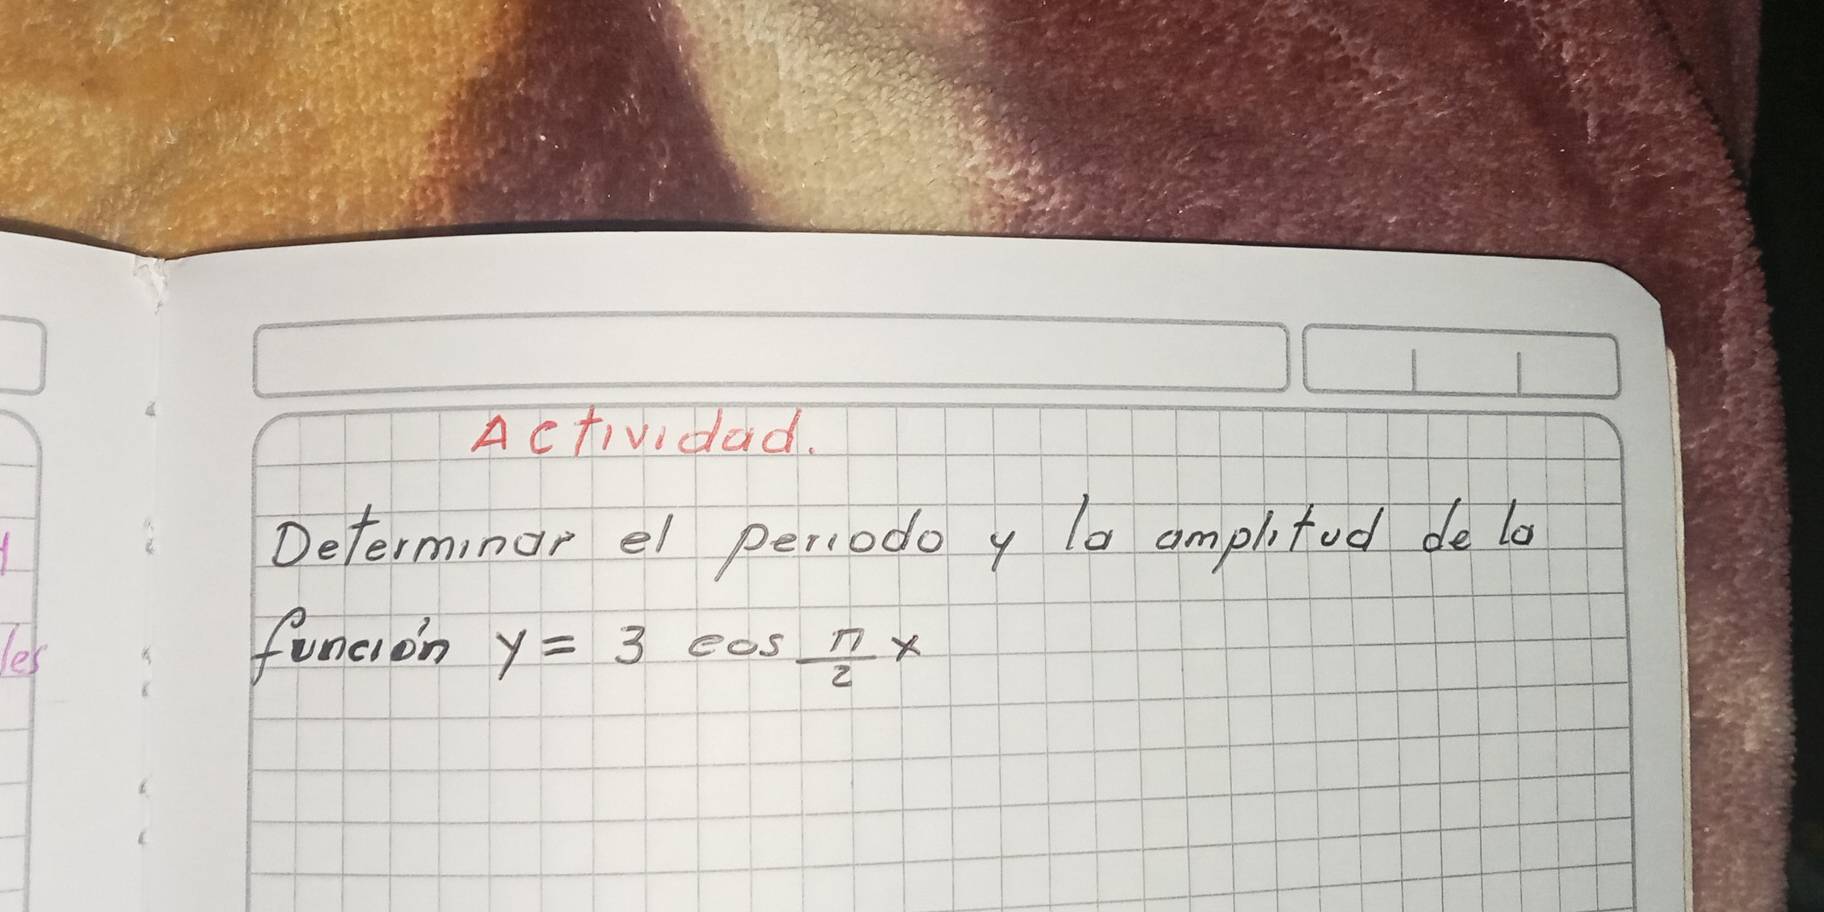 Actividad.
Determinar el periodo y la amplitud de la
función y = 3 cos π/2 x
les